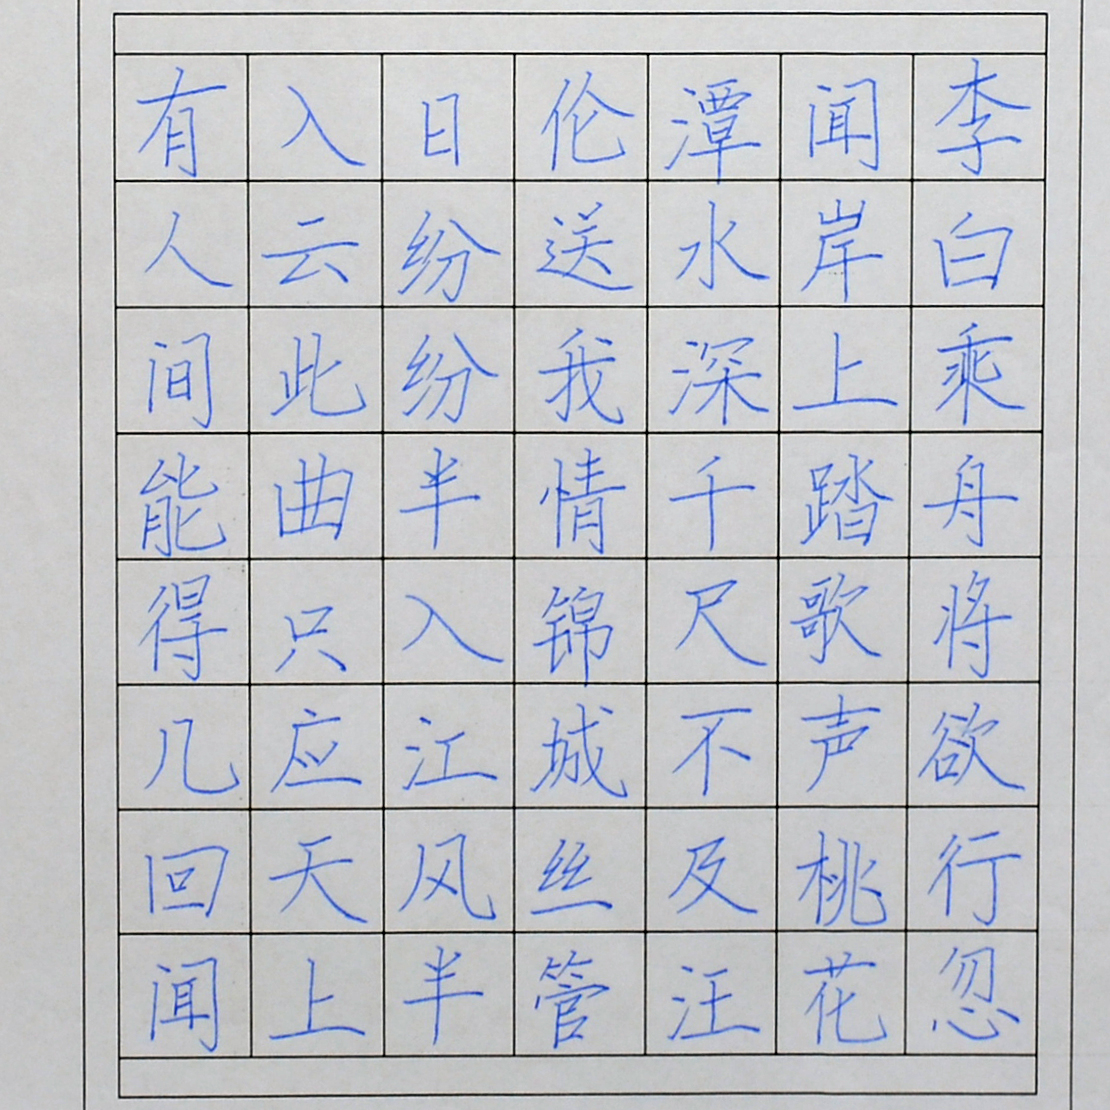 李白乘舟将欲行忽
闻岸上踏歌声桃花
潭水深千尺不及汪
伦送我情锦城丝管
日纷纷半入江风半
入云此曲只应天上
有人间能得几回闻